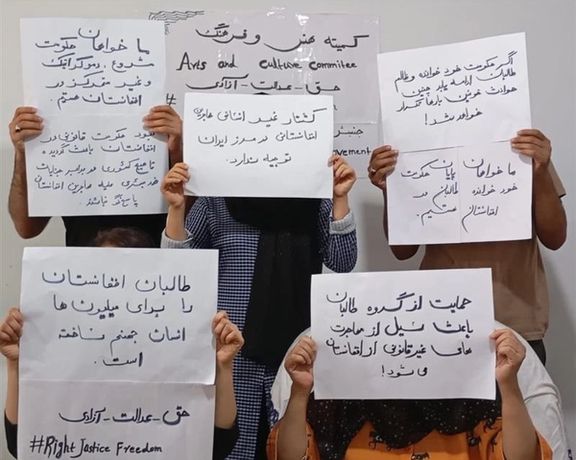 کمیته هنر و فرهنگ
Arts and Culture Commitee
حق - عدالت - آزادی
#
جنبش
ovement
ما خواهان حکومت
مشروع، دموکراتیک
و غیر متمرکز در
افغانستان هستیم.
نبود حکومت قانونی در
افغانستان باعث گردیده
تا هیچ کشوری در برابر جنایات
ضد بشری علیه مهاجرین افغانستان
پاسخگو نباشد.
کشتار غیر انسانی مهاجرین
افغانستانی در مرز ایران
توجیه ندارد.
اگر حکومت خود خوانده و ظالم
طالبان ادامه یابد چنین
حوادث خونین بارها تکرار
خواهد شد!
ما خواهان پایان حکومت
خود خوانده طالبان در
افغانستان هستیم.
طالبان افغانستان
را برای میلیون ها
انسان جهنم ساخته
است.
حق - عدالت - آزادی
#Right Justice Freedom
حمایت از گروه طالبان
باعث سیل از مهاجرت
های غیر قانونی از افغانستان
می شود!